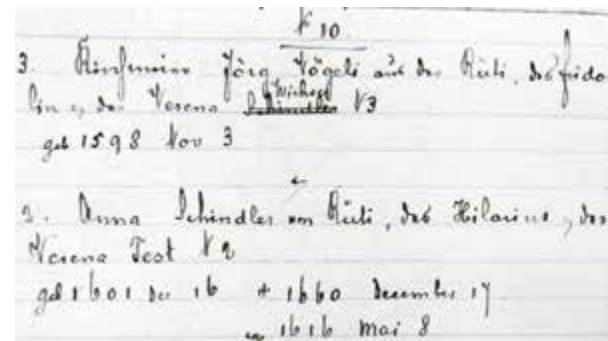 N 10
3. Kirchmeier Jörg Vögeli aus der Rüti, des Frido
lin u. der Verena Schindler Wichser N3
geb 1598 Nov 3
2. Anna Schindler von Rüti, des Hilarius, der
Verena Test N 2
geb 1601 Dec 16 + 1660 December 17
1616 Mai 8